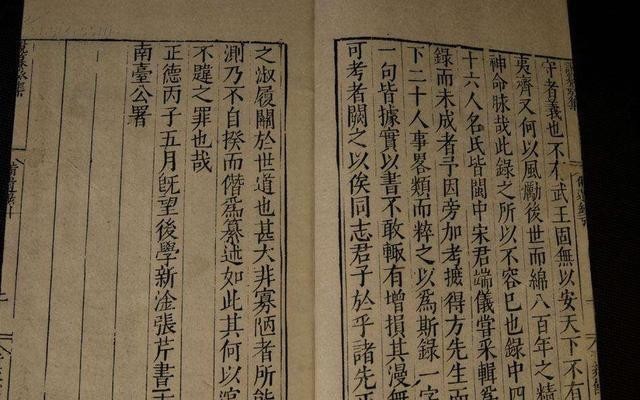 守者義也不有武王固無以安天下不有
夷齊又何以風勵後世而綿八百年之精
神命脉哉此錄之所以不容已也錄中四
十六人名氏皆閩中宋君端儀嘗采輯爲
錄而未成者予因旁加考摭得方先生而
下二十人事畧類而粹之以爲斯錄一字
一句皆據實以書不敢輙有增損其漫無
可考者闕之以俟同志君子於乎諸先正
之淑履關於世道也甚大非寡陋者所能
測乃不自揆而僭爲纂述如此其何以
不韙之罪也哉
正德丙子五月旣望後學新淦張芹書于
南臺公署